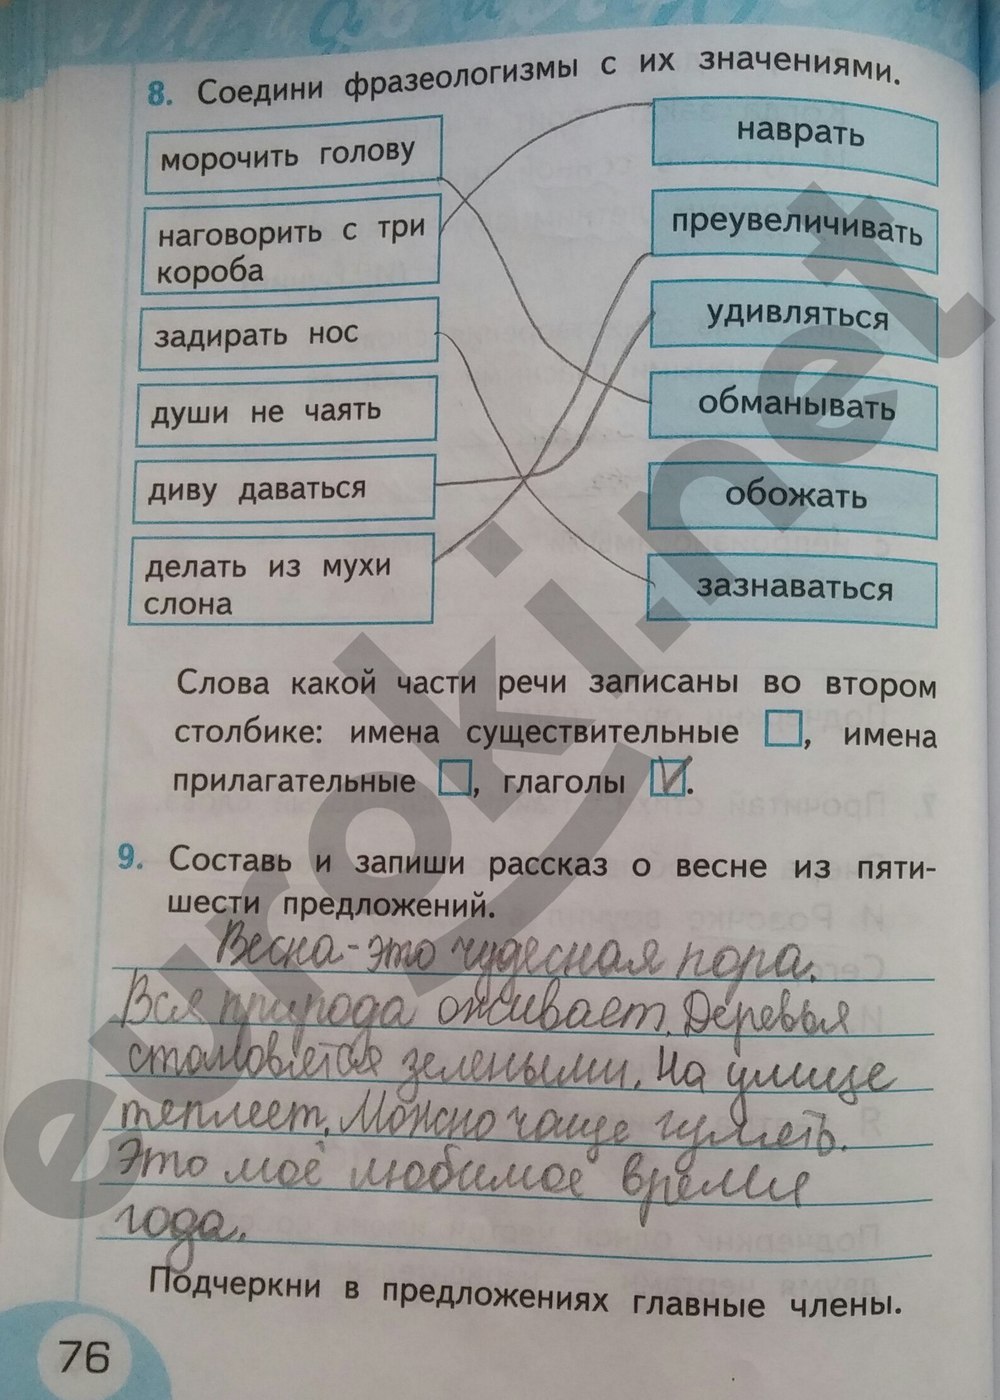 8. Соедини фразеологизмы с их значениями.
морочить голову
наврать
наговорить с три
короба
преувеличивать
задирать нос
удивляться
души не чаять
обманывать
диву даваться
обожать
делать из мухи
слона
зазнаваться
Слова какой части речи записаны во втором
столбике: имена существительные , имена
прилагательные , глаголы V.
9. Составь и запиши рассказ о весне из пяти-
шести предложений.
Весна - это чудесная пора.
Вся природа оживает. Деревья
становятся зелеными. На улице
теплеет. Можно чаще гулять.
Это моё любимое время
года.
Подчеркни в предложениях главные члены.
76
euroki.net